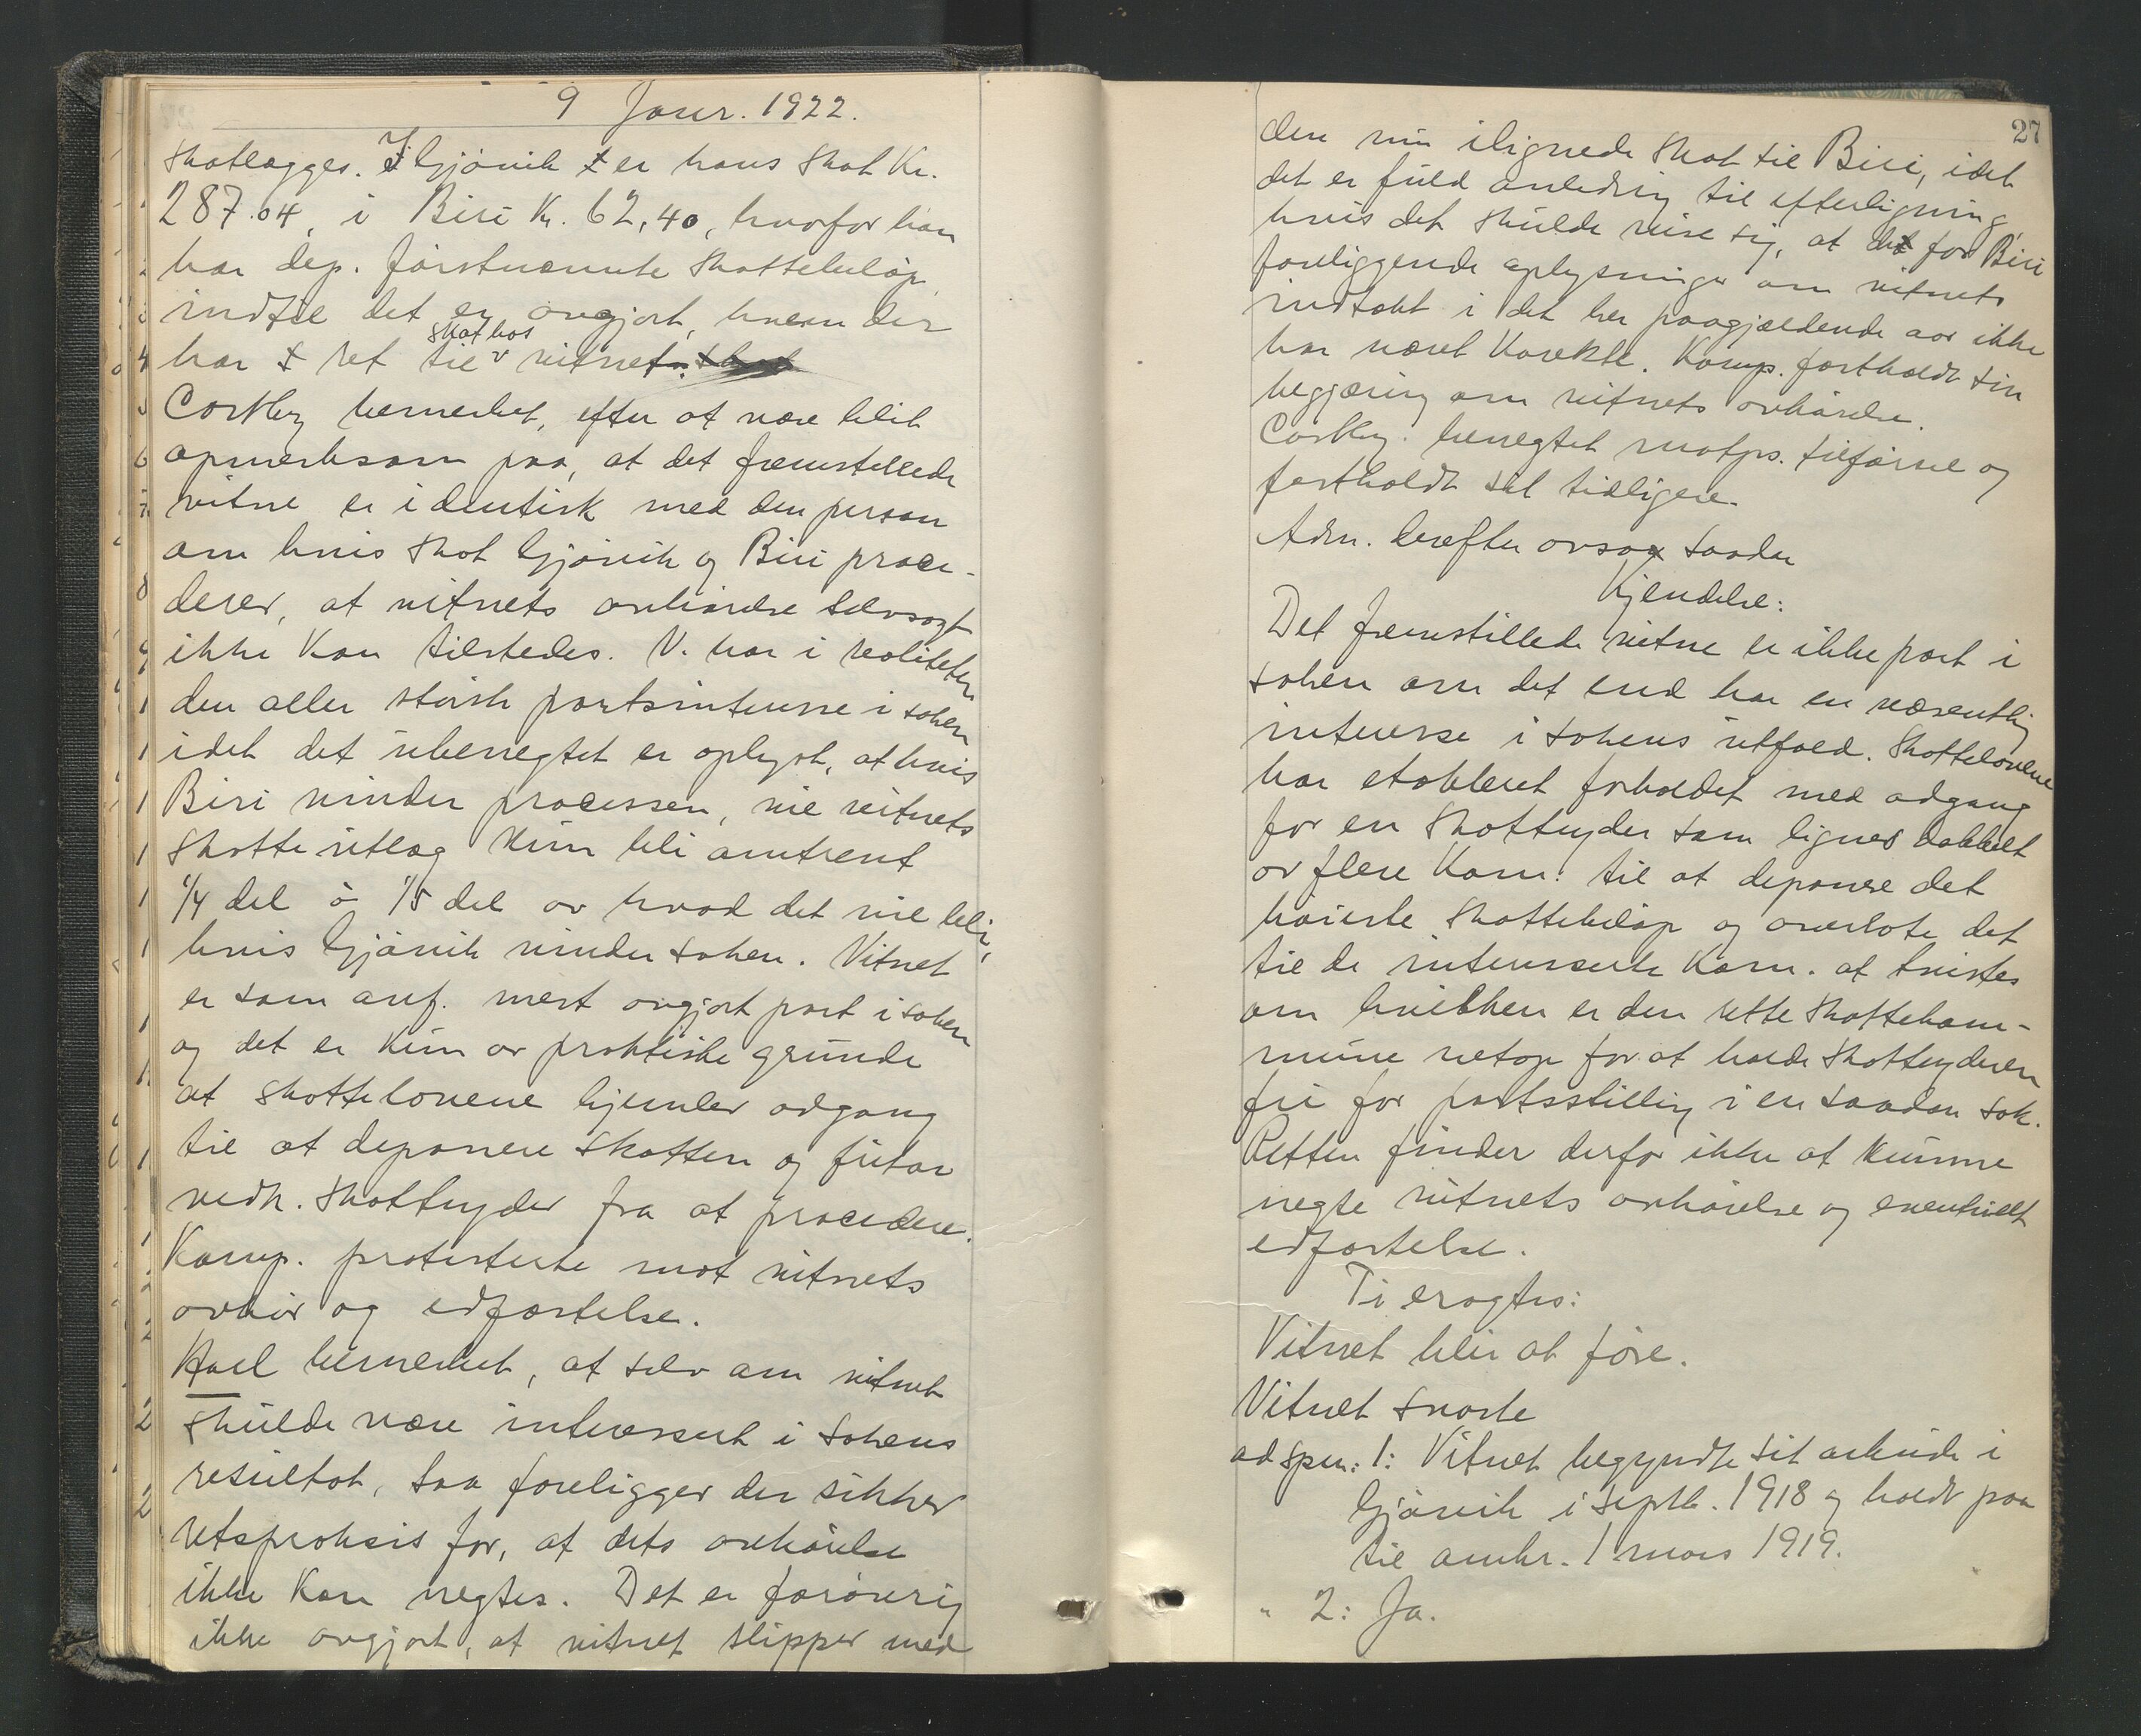 9 Janr. 1922.
skatlægges. I Gjövik er hans skat Kr.
287.04, i Biri Kr. 62,40, hvorfor han
har dep. förstnævnte skattebelöp
indtil det er avgjort, hvem der
har ret til skat hos vitnet.
Castby bemerket, efter at være blit
opmerksom paa, at det fremstillede
vitne er identisk med den person
om hvis skat Gjövik og Biri proce-
derer, at vitnets avhörelse selvsagt
ikke kan tilstedes. V. har i realiteten
den aller störste partsinteresse i saken
idet det ubenegtet er oplyst, at hvis
Biri vinder processen, vil vitnets
skatteutlæg kun bli omtrent
1/4 del à 1/5 del av hvad det vil bli,
hvis Gjövik vinder saken. Vitnet
er som anf. mest avgjort part i saken
og det er kun av praktiske grunde
at skattelovene hjemler adgang
til at deponere skatten og fritar
vedk. skatteyder fra at procedere.
Komp. protesterte mot vitnets
avhör og edfæstelse.
Hoel bemerket, at selv om vitnet
skulde være interessert i sakens
resultat, saa foreligger der sikker
retspraksis for, at dets avhörelse
ikke kan negtes. Det er foröverig
ikke avgjort, at vitnet slipper med
27
den nu ilignede skat til Biri, idet
det er fuld anledning til efterligning,
hvis det skulde vise sig, at de for Biri
foreliggende oplysninger om vitnets
indtækt i det her paagjældende aar ikke
har været korekte. Komp. fastholdt sin
begjæring om vitnets avhörelse.
Castby. benegtet motps. tilförsel og
fastholdt sit tidligere.
Adm. derefter avsa saadan
Kjendelse:
Det fremstillede vitne er ikke part i
saken om det end har en væsentlig
interesse i sakens utfald. Skattelovene
har etableret forholdet med adgang
for en skatteyder som lignes dobbelt
av flere kom. til at deponere det
höieste skattebelöp og overlate det
til de interesserte kom. at tvistes
om hvilken er den rette skattekom-
mune netop for at holde skatteyderen
fri for partsstilling i en saadan sak.
Retten finder derfor ikke at kunne
negte vitnets avhörelse og eventuelt
edfæstelse.
Ti eragtes:
Vitnet blir at före.
Vitnet svarte
ad spm. 1: Vitnet begyndte sit arbeide i
Gjövik i septb. 1918 og holdt paa
til omkr. 1 mars 1919.
" 2: Ja.